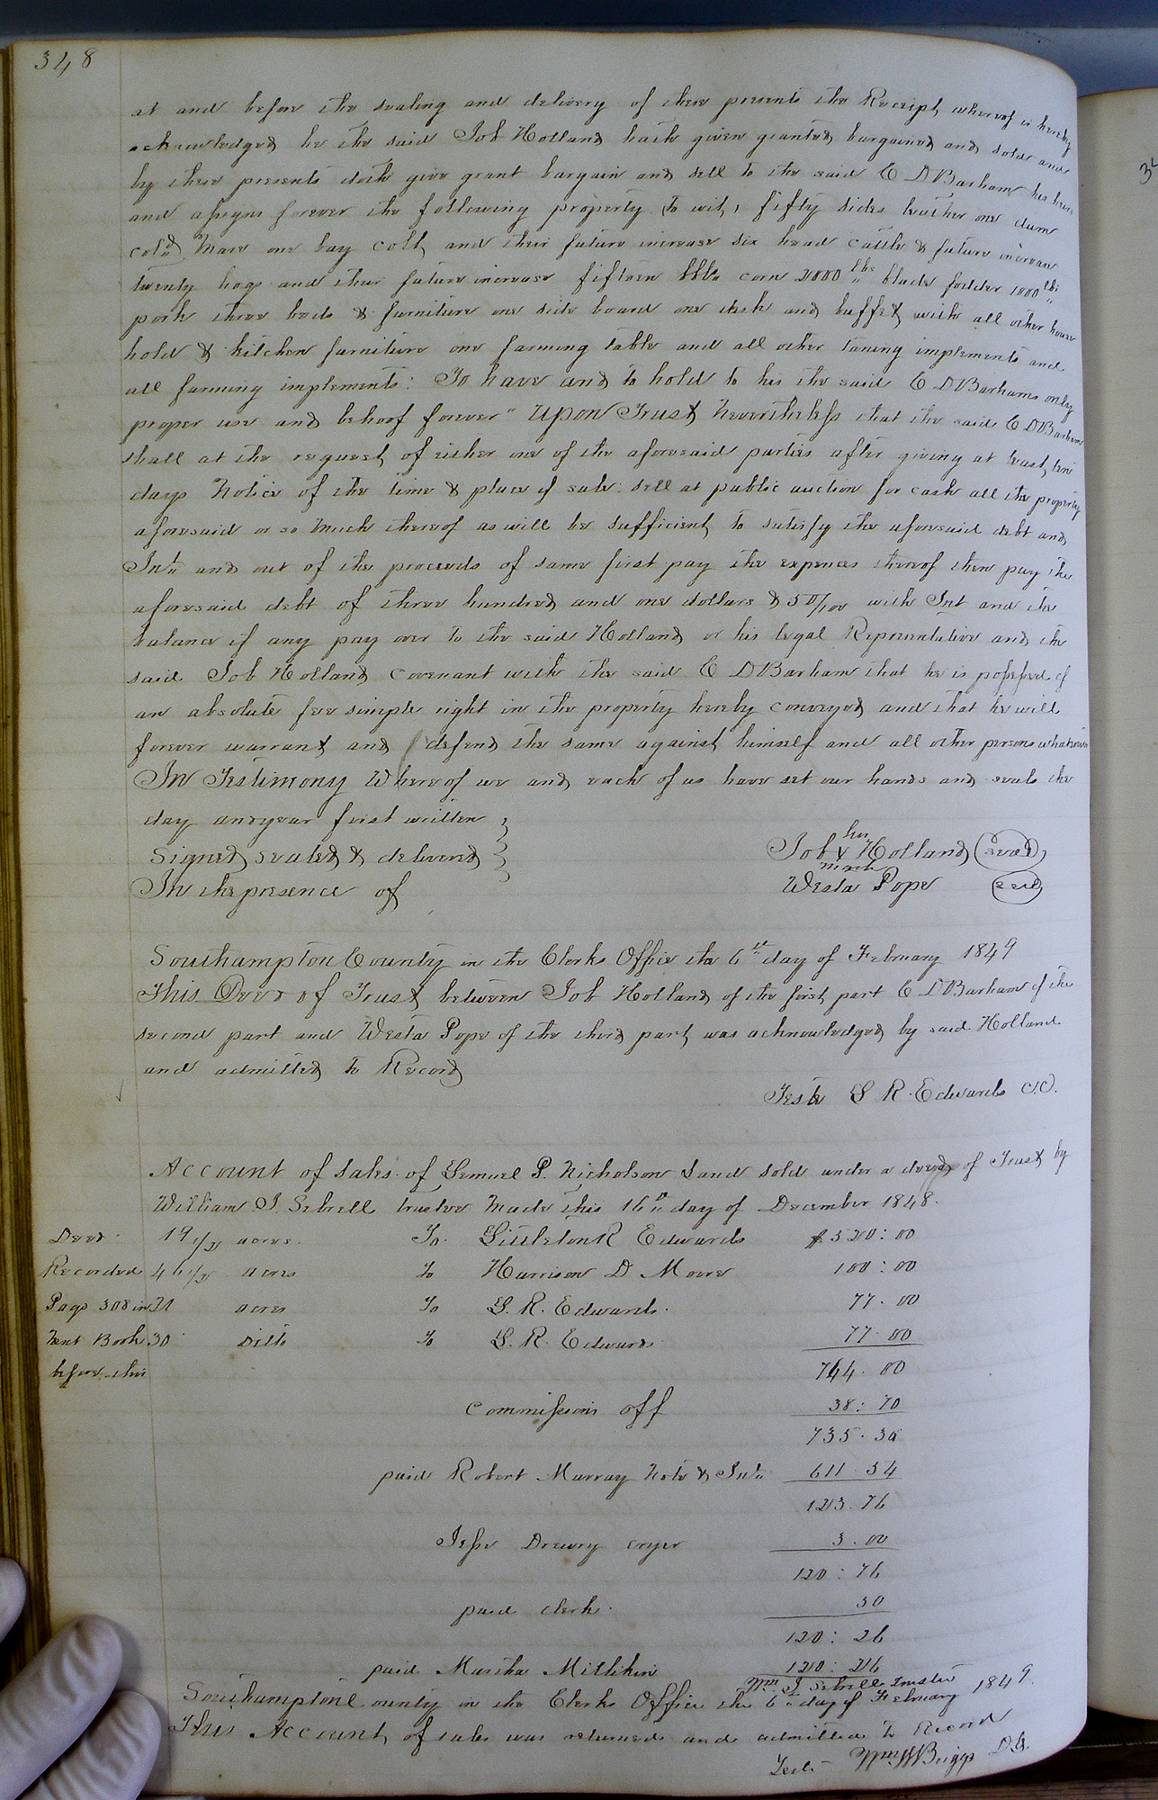 348
at and before the sealing and delivery of these presents the Receipt whereof is hereby
acknowledged he the said Job Holland hath given granted bargained and sold and
by these presents doth give grant bargain and sell to the said E D Barham his heirs
and assigns forever the following property to wit, fifty sides leather one
cold Mare one bay colt and their future increase six head cattle & future increase
twenty hogs and their future increase fifteen bbls corn 2000 lbs blade fodder 1000 lbs
pork three beds & furniture one side board one desk and buffet with all other house
hold & kitchen furniture one farming table and all other taning implements and
all farming implements: To have and to hold to his the said E D Barhams only
proper use and behoof forever" Upon Trust Nevertheless that the said E D Barham
shall at the request of either one of the aforesaid parties after giving at least ten
days Notice of the time & place of sale sell at public auction for cash all the property
aforesaid or so much thereof as will be sufficient to satisfy the aforesaid debt and
Int and out of the proceeds of same first pay the expences thereof then pay the
aforesaid debt of three hundred and one dollars & 50/100 with Int and the
balance if any pay over to the said Holland or his legal Representative and the
said Job Holland covenant with the said E D Barham that he is possessed of
an absolute fee simple right in the property hereby conveyed and that he will
forever warrant and defend the same against himself and all other persons whatsoever
In Testimony Whereof we and each of us have set our hands and seals the
day and year first written
Signed sealed & delivered
In the presence of
his
Job X Holland (seal)
mark
Westa Pope (seal)
Southampton County in the Clerks Office the 6th day of February 1849
This Deed of Trust between Job Holland of the first part E D Barham of the
second part and Westa Pope of the third part was acknowledged by said Holland
and admitted to Record
Teste L R Edwards C.C.
Account of sales of Lemuel P. Nicholson Land sold under a deed of Trust by
William J. Sebrell trustee Made this 16th day of December 1848.
Deed 19 1/2 acres. To Littleton R Edwards $520:00
Recorded 46 1/2 acres To Harrison D Moore 100:00
Page 308 in acres To L. R. Edwards. 77.00
Book 30 ditto To L. R. Edwards 77.00
before this
764.00
commissions off 38:70
735.30
paid Robert Murray Note & Int 611.54
123.76
Jesse Drewry cryer 3.00
120:76
paid clerk. 50
120:26
paid Martha Millikin 120:26
Wm J Sebrell Trustee
Southampton County in the Clerks Office the 6th day of February 1849.
This Account of sales was returned and admitted to Record
Test Wm W Briggs D.C.